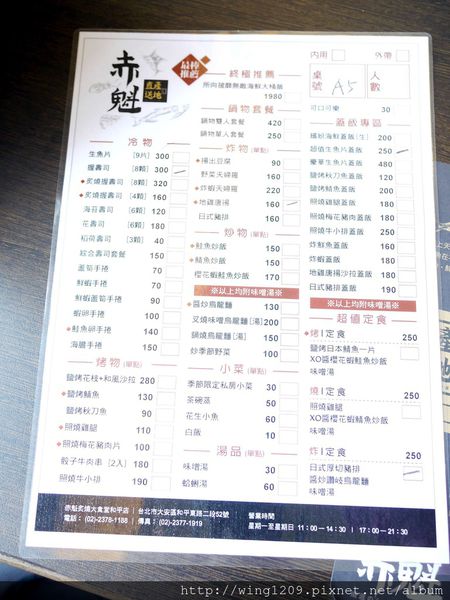 赤魁
產地
直送
最棒
推薦
終極推薦
所向披靡無敵海鮮大桶飯
1980
內用
外帶
桌號 A5
人數
可口可樂 30
鍋物套餐
鍋物雙人套餐 420
鍋物單人套餐 250
冷物
生魚片 [9片] 300
握壽司 [8顆] 300
炙燒握壽司 [8顆] 320
炙燒握壽司 [4顆] 160
海苔壽司 [6顆] 120
花壽司 [6顆] 60
稻荷壽司 [3顆] 40
綜合壽司套餐 150
蘆筍手捲 70
鮮蝦手捲 70
鮮蝦蘆筍手捲 90
蝦卵手捲 90
鮭魚卵手捲 90
海膽手捲 150
烤物
鹽烤花枝+和風沙拉 280
鹽烤鯖魚 130
鹽烤秋刀魚 90
照燒雞腿 110
照燒梅花豬肉片 100
骰子牛肉串 [2入] 180
照燒牛小排 190
炸物(單點)
揚出豆腐 90
野菜天婦羅
炸蝦天婦羅
地雞唐揚 160
日式豬排
炒物(單點)
鮭魚炒飯 150
鯖魚炒飯 150
櫻花蝦鮭魚炒飯 170
※以上均附味噌湯※
醬炒烏龍麵 130
叉燒味噌烏龍麵[湯] 200
鍋燒烏龍麵[湯] 150
炒季節野菜 100
小菜(單點)
季節限定私房小菜 30
茶碗蒸 50
花生小魚 60
白飯 10
湯品(單點)
味噌湯 30
蛤蜊湯 60
蓋飯專區
繽紛海鮮蓋飯[生] 200
超值生魚片蓋飯 250
豪華生魚片蓋飯
鹽烤秋刀魚蓋飯
鹽烤鯖魚蓋飯
照燒雞腿蓋飯
照燒梅花豬肉蓋飯
照燒牛小排蓋飯
炸鮮魚蓋飯
炸蝦蓋飯
地雞唐揚沙拉蓋飯
日式豬排蓋飯
※以上均附味噌湯※
超值定食
烤|定食 250
鹽烤日本鯖魚一片
XO醬櫻花蝦鮭魚炒飯
味噌湯
燒|定食 250
照燒雞腿
XO醬櫻花蝦鯖魚炒飯
味噌湯
炸|定食 250
日式厚切豬排
醬炒讚岐烏龍麵
味噌湯
赤魁炙燒大食堂和平店 | 台北市大安區和平東路二段52號
電話: (02)-2378-1188 | 傳真: (02)-2377-1919
營業時間
星期一至星期日 11:00-14:30 | 17:00-21:30
http://wing1209.pixnet.net/album